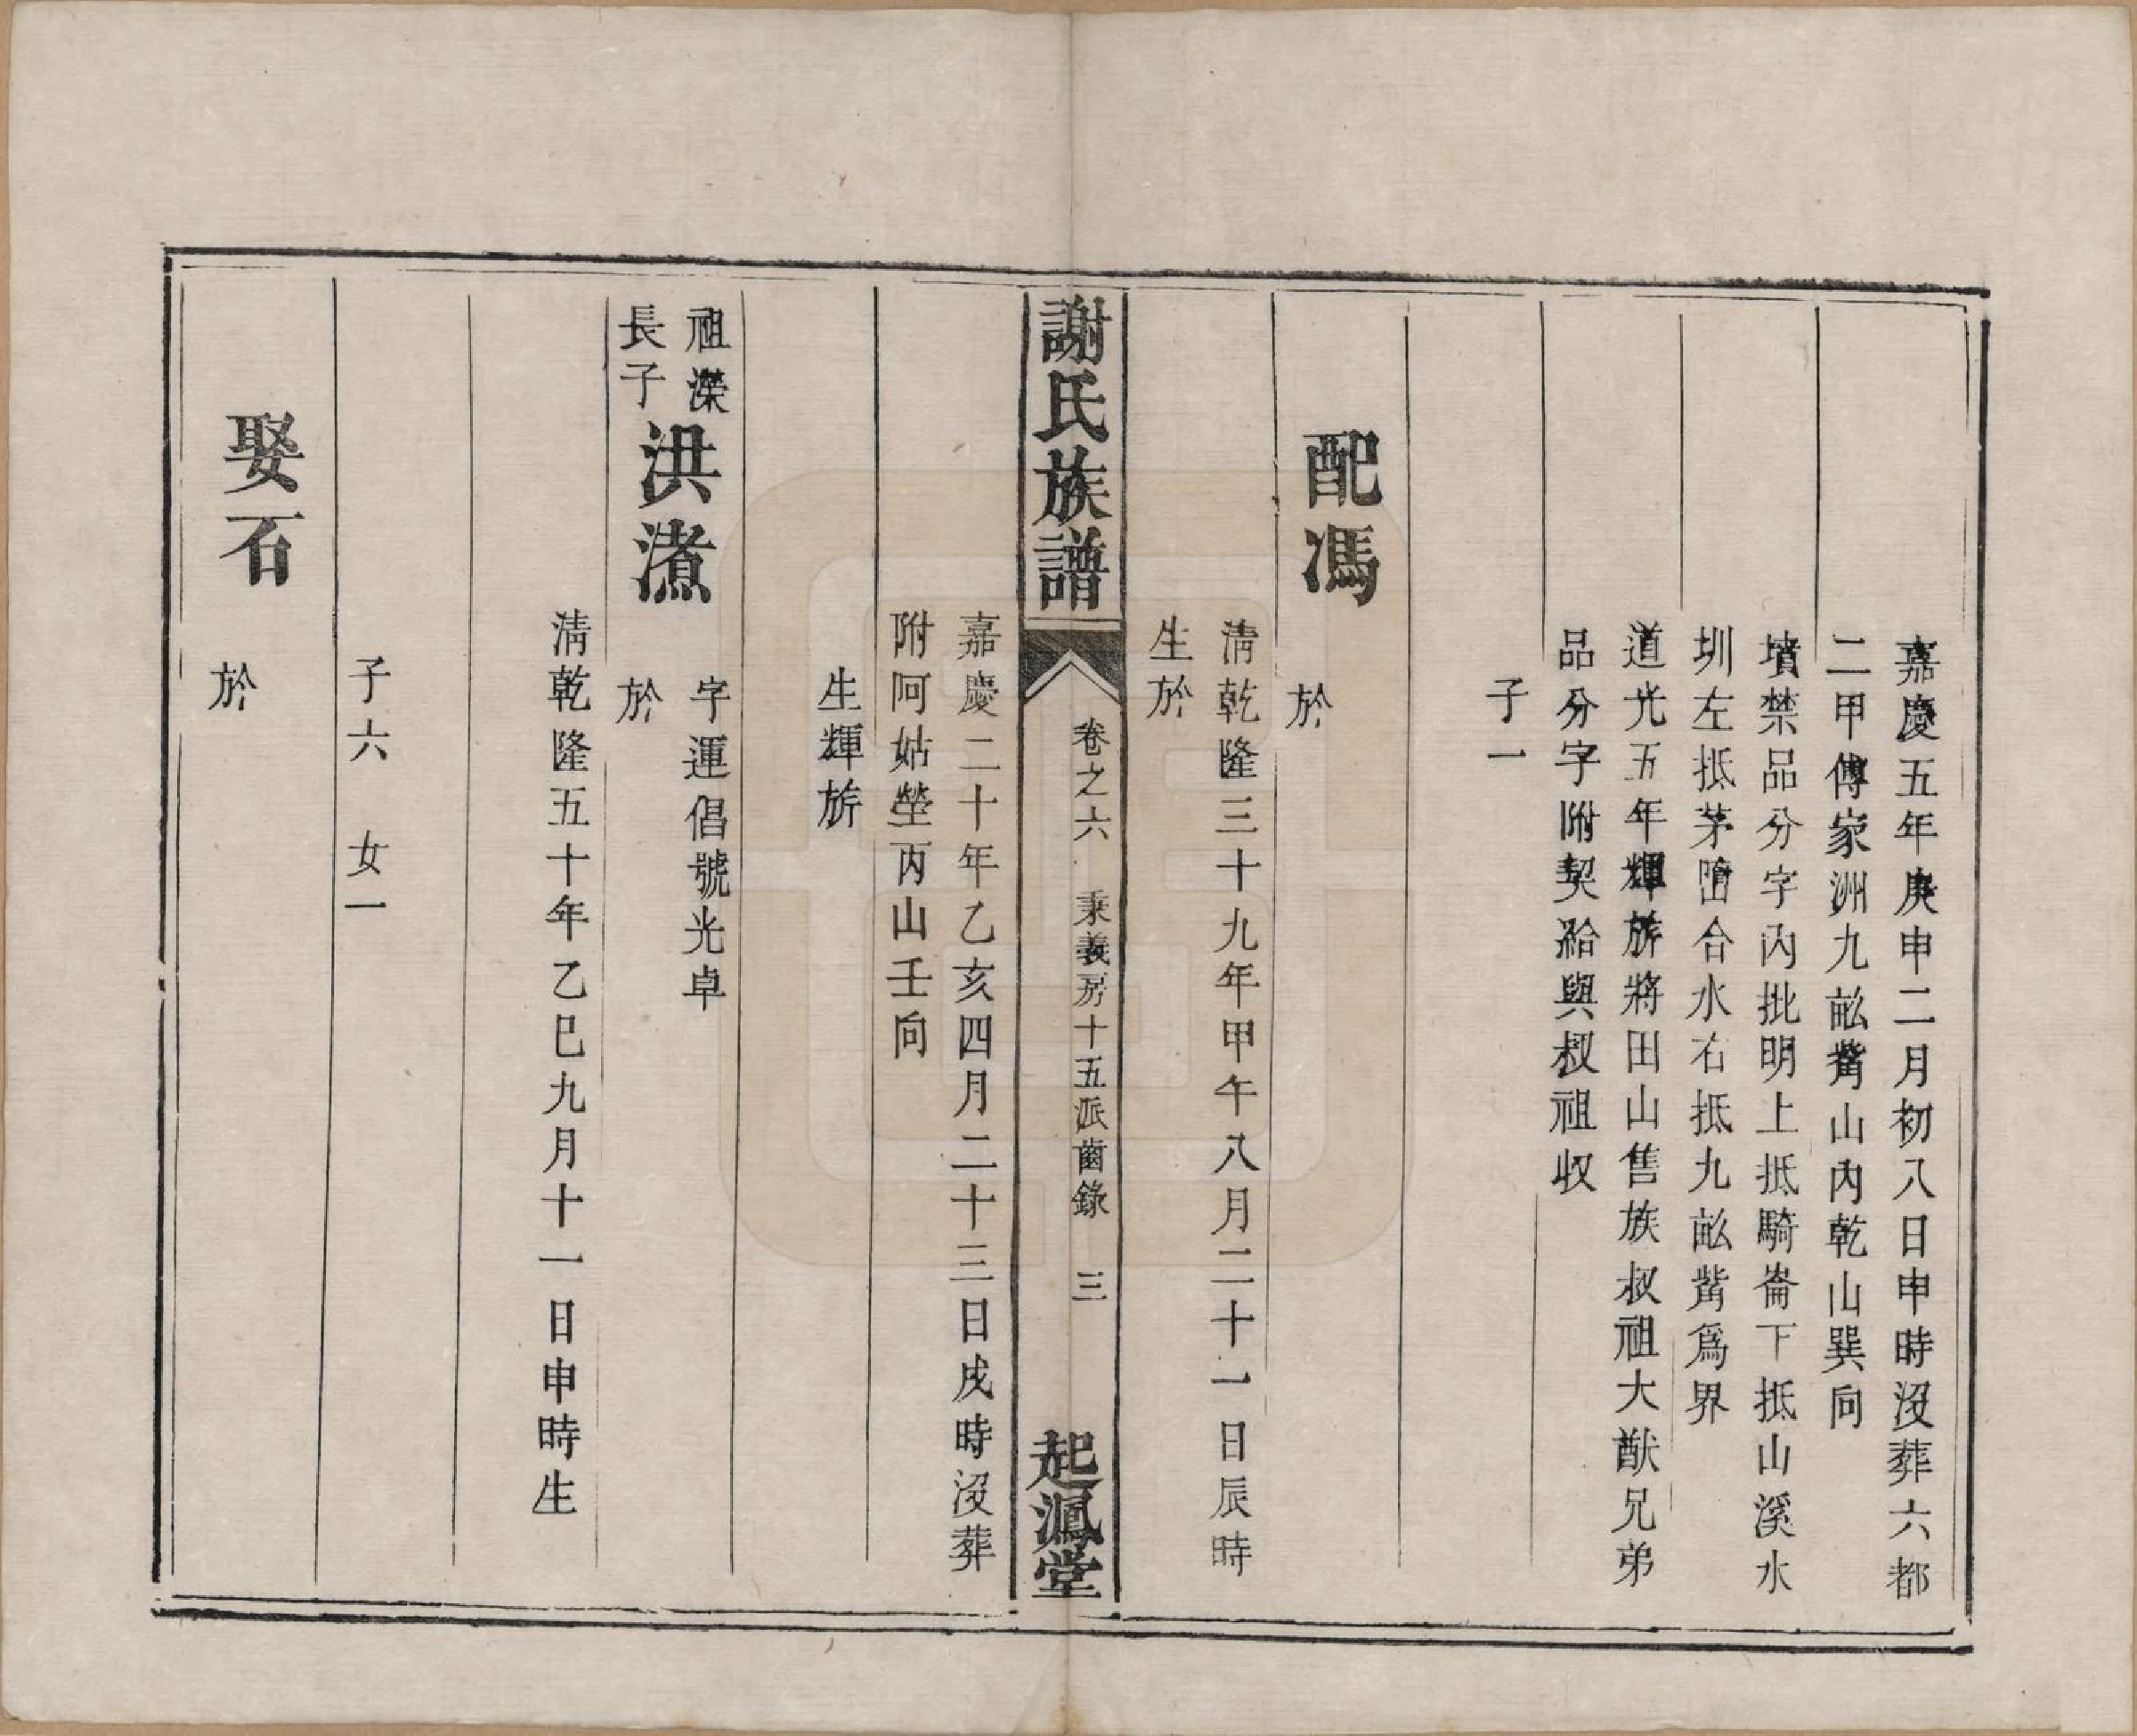 嘉慶五年庚申二月初八日申時沒葬六都
二甲傅家洲九畝觜山內乾山巽向
墳禁品分字內批明上抵騎崙下抵山溪水
圳左抵茅𡺸合水右抵九畝觜爲界
道光五年輝旂將田山售族叔祖大猷兄弟
品分字附契給與叔祖收
子一
配馮
於
清乾隆三十九年甲午八月二十一日辰時
生於
謝氏族譜
卷之六
秉義房十五派齒錄
三
起鳳堂
嘉慶二十年乙亥四月二十三日戌時沒葬
附阿姑塋丙山壬向
生輝旂
祖濚
長子
洪㵭
字運倡號光卓
於
清乾隆五十年乙巳九月十一日申時生
子六 女一
娶石
於